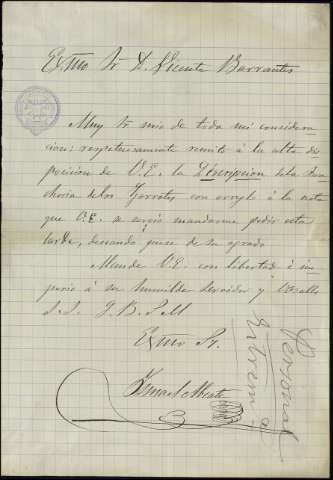 Exmo Sr D. Vicente Barrantes
Muy Sr mio de toda mi considera
cion: respetuosamente remito á la alta dis
posicion de V.E. la Descripcion de la
de los con arreglo á la nota
que V.E. se sirvió mandarme pedir esta
tarde, deseando sea de su agrado.
Mande V.E. con libertad é im
perio á su humilde servidor y
S. S. Q. B. S. M
Exmo Sr.
Personal